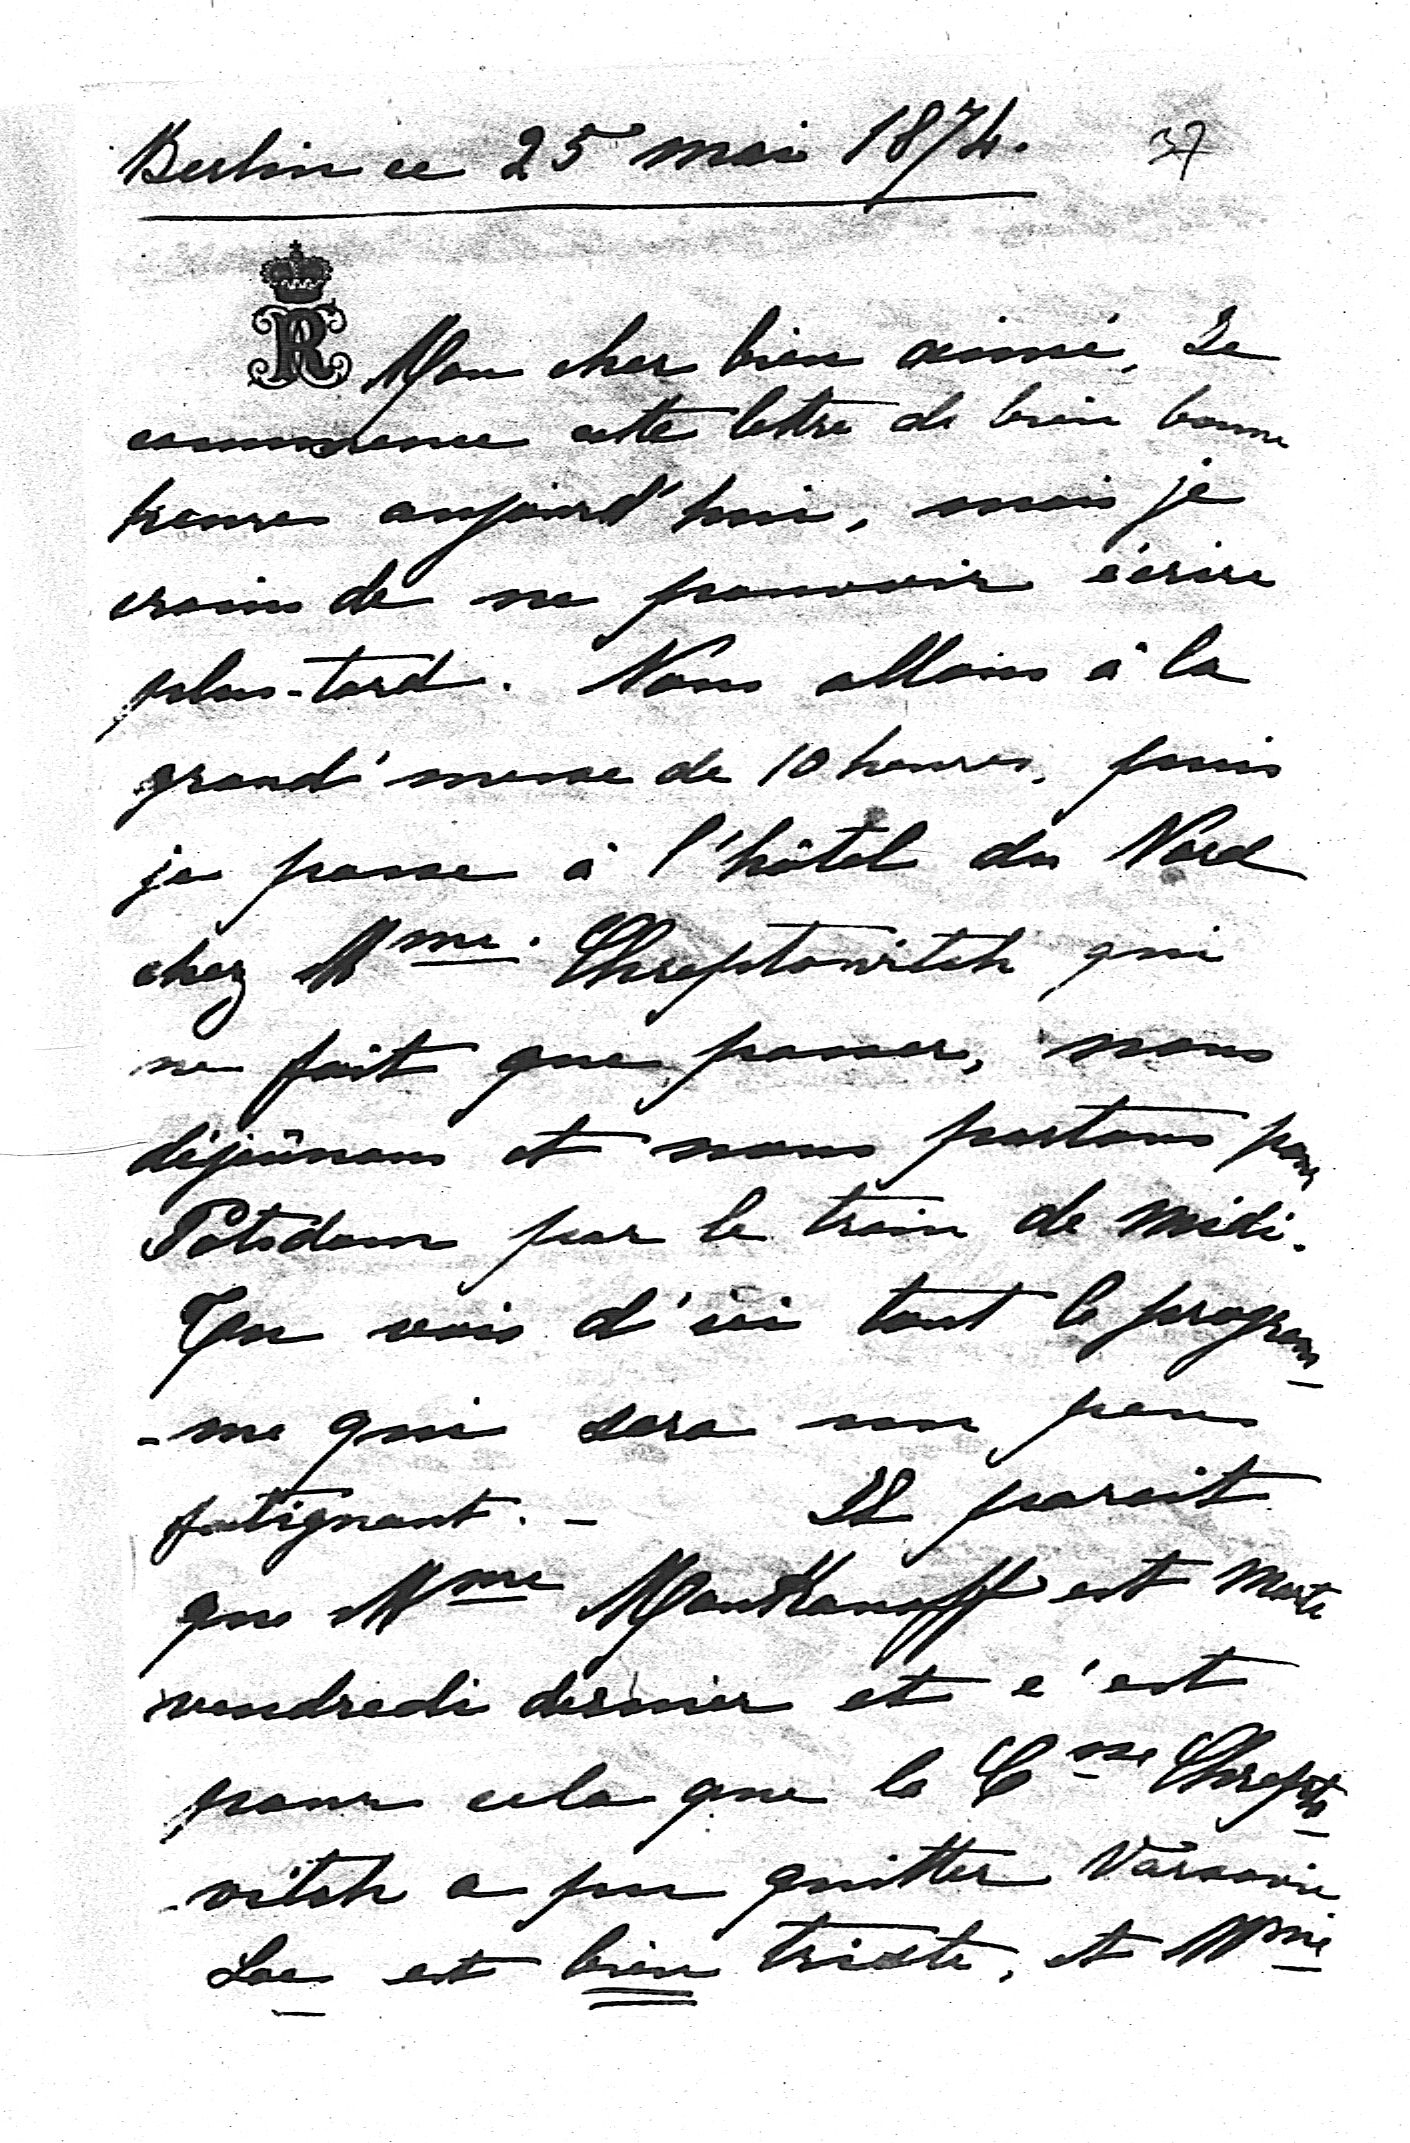 Berlin ce 25 mai 1874. 37
R
Mon cher bien aimé, Je
commence cette lettre de bien bonne
heure aujourd'hui, mais je
crains de ne pouvoir écrire
plus-tard. Nous allons à la
grand'messe de 10 heures, puis
je passe à l'hôtel du Nord
chez Mme. Chreptowitch qui
ne fait que passer, nous
déjeûnons et nous partons pour
Potsdam par le train de midi.
Tu vois d'ici tout le program-
-me qui sera un peu
fatignant. - Il parait
que Mme Moukanoff est morte
vendredi dernier et c'est
pour cela que la Csse Chrepto-
-vitch a pu quitter Varsovie
est bien triste, et Mme